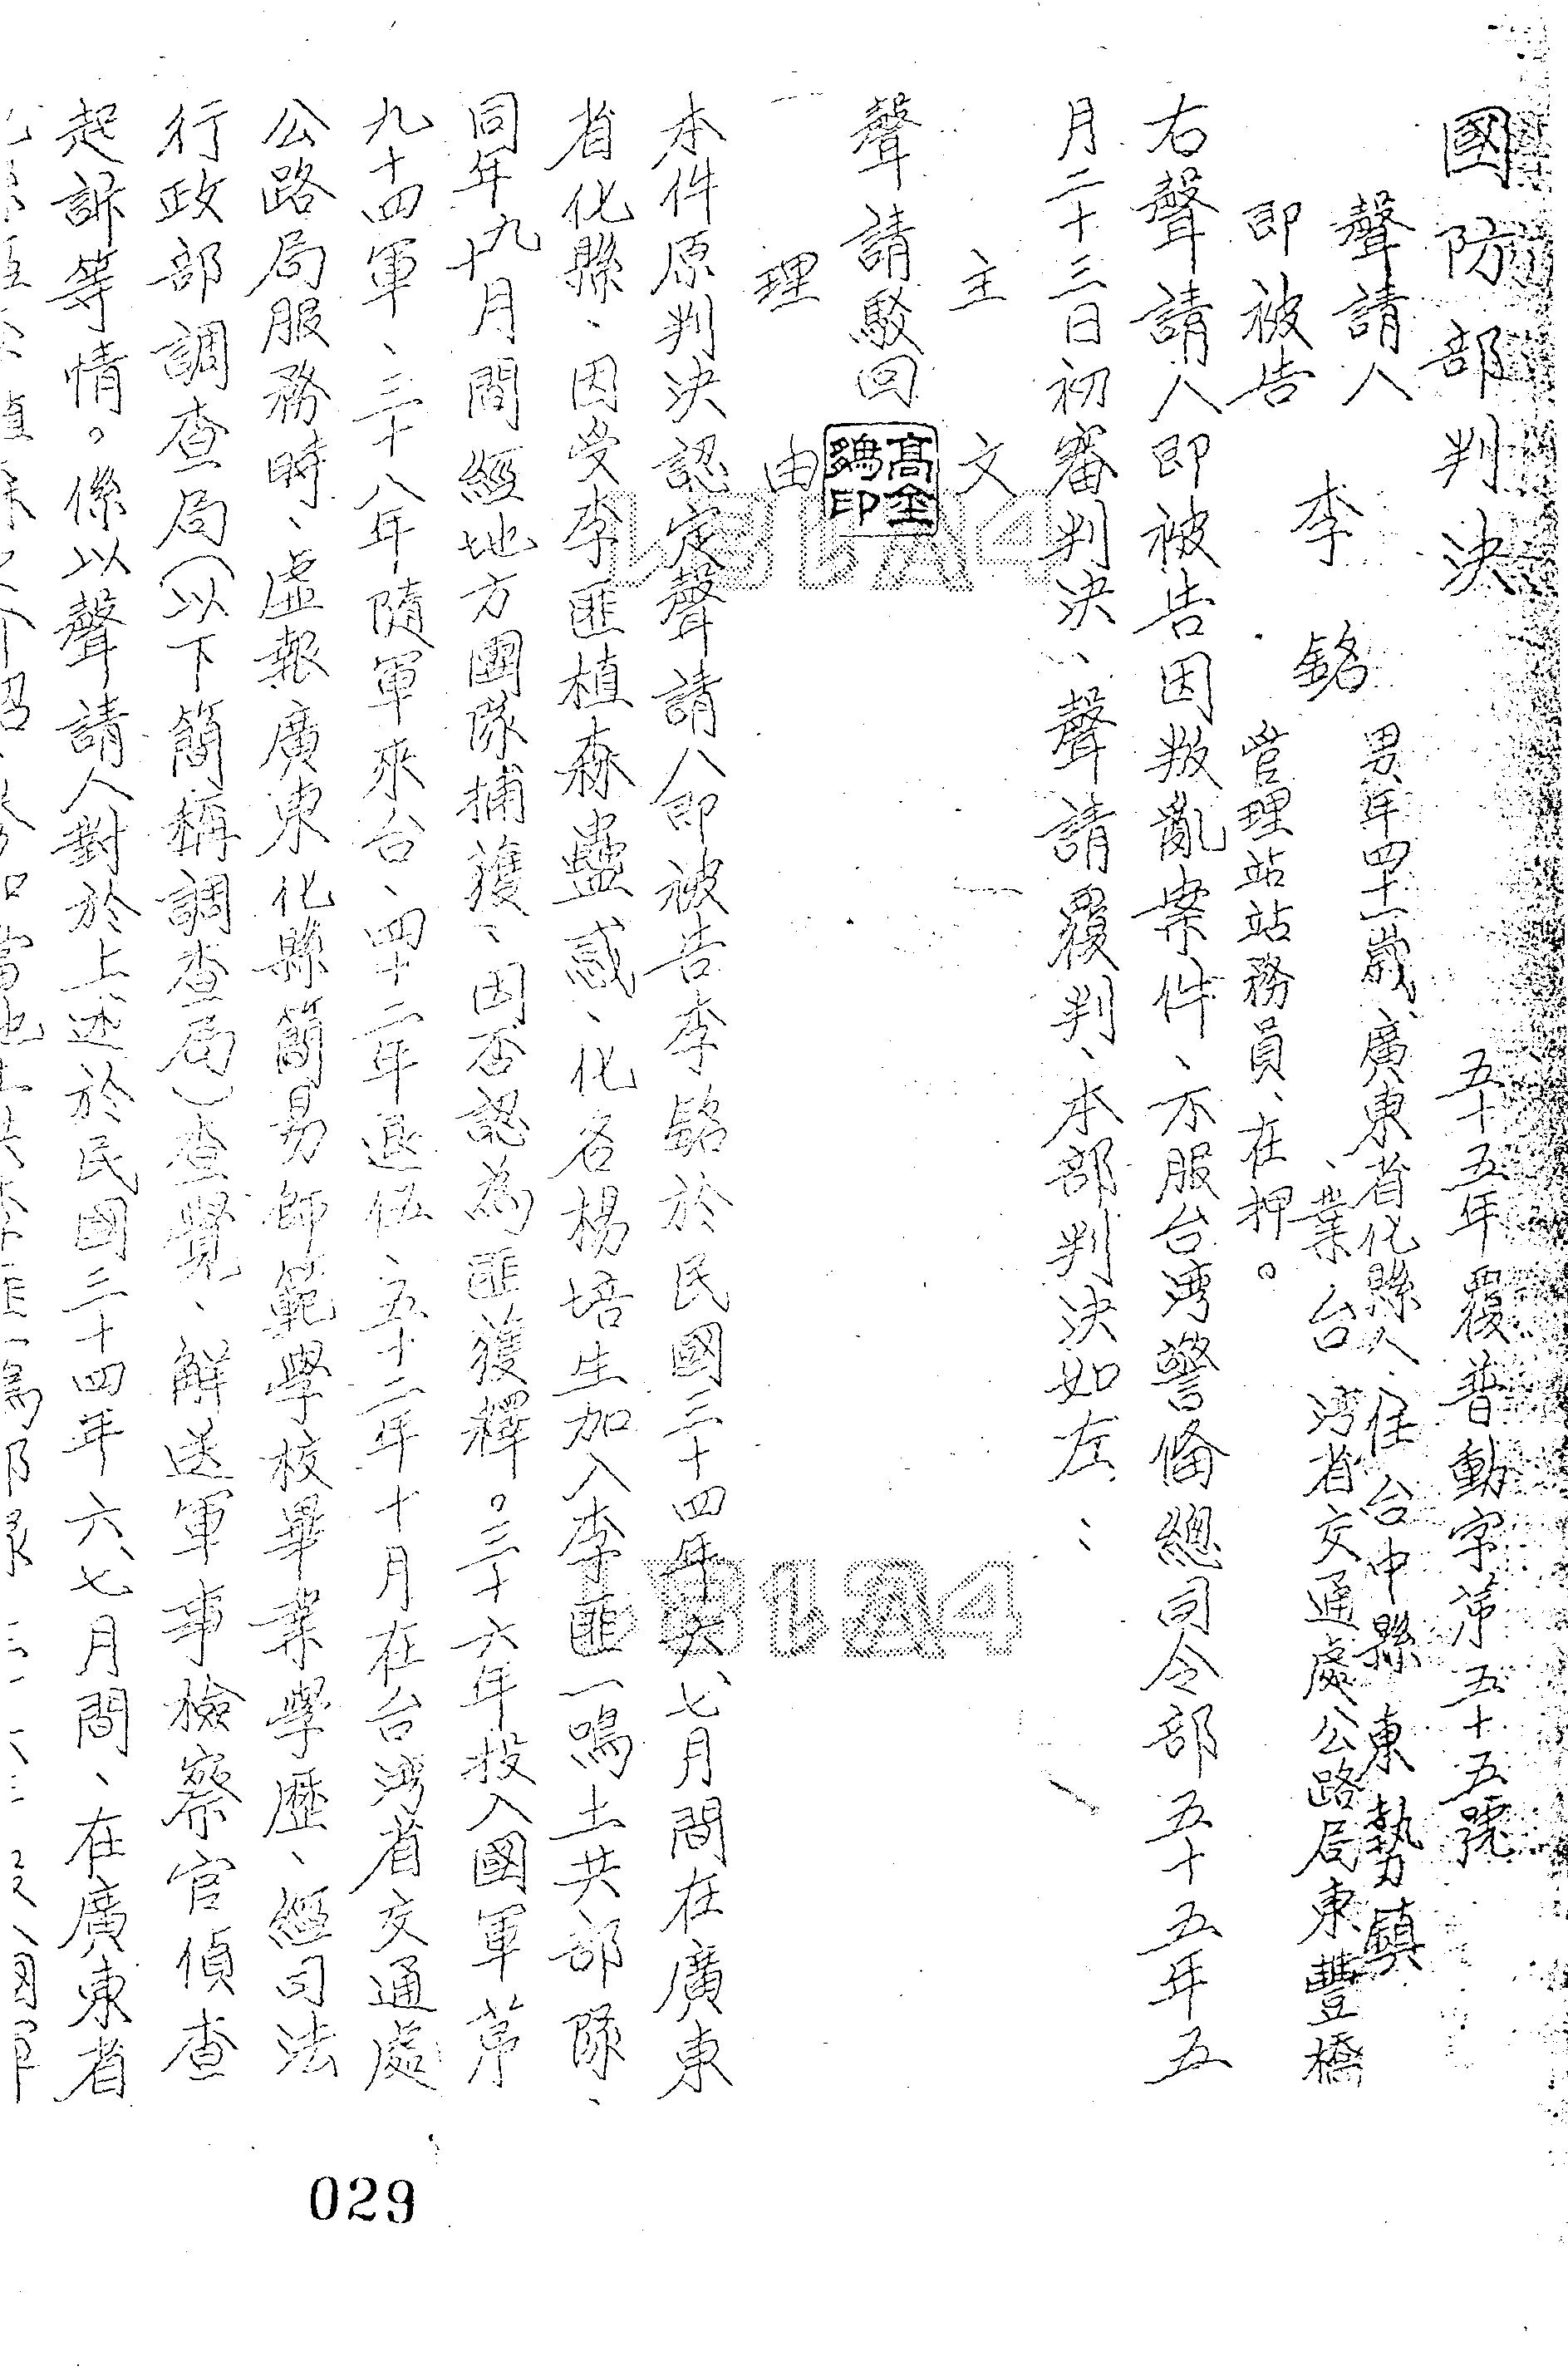 國防部判決
五十五年覆普動字第五十五號
聲請人
即被告
李銘
男年四十一歲、廣東省化縣人、住台中縣東勢鎮
、業台灣省交通處公路局東豐橋
管理站站務員、在押。
右聲請人即被告因叛亂案件、不服台灣警備總司令部五十五年五
月二十三日初審判決、聲請覆判、本部判決如左：
主文
聲請駁回
高金鵷印
理由
本件原判決認定聲請人即被告李銘於民國三十四年六、七月間在廣東
省化縣、因受李匪植森蠱惑、化名楊培生加入李匪一鳴土共部隊、
同年九十月間經地方團隊捕獲、因否認為匪獲釋。三十六年投入國軍第
九十四軍、三十八年隨軍來台、四十二年退伍、五十二年十月在台灣省交通處
公路局服務時、虛報廣東化縣簡易師範學校畢業學歷、經司法
行政部調查局（以下簡稱調查局）查覺、解送軍事檢察官偵查
起訴等情。係以聲請人對於上述於民國三十四年六、七月間、在廣東省
029